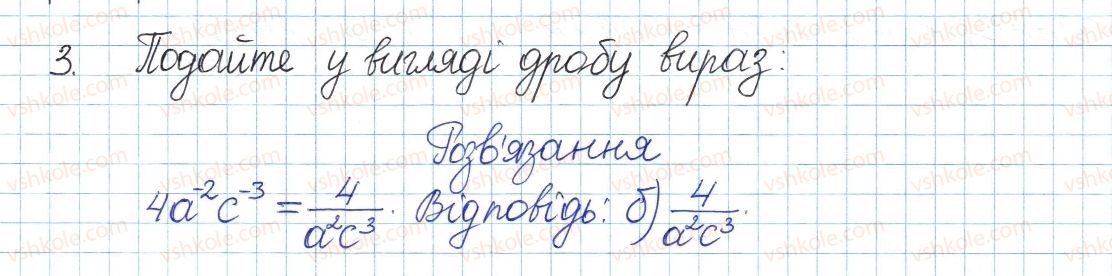 3. Подайте у вигляді дробу вираз:
Розв'язання
4a⁻²c⁻³ = 4/a²c³. Відповідь: б) 4/a²c³.